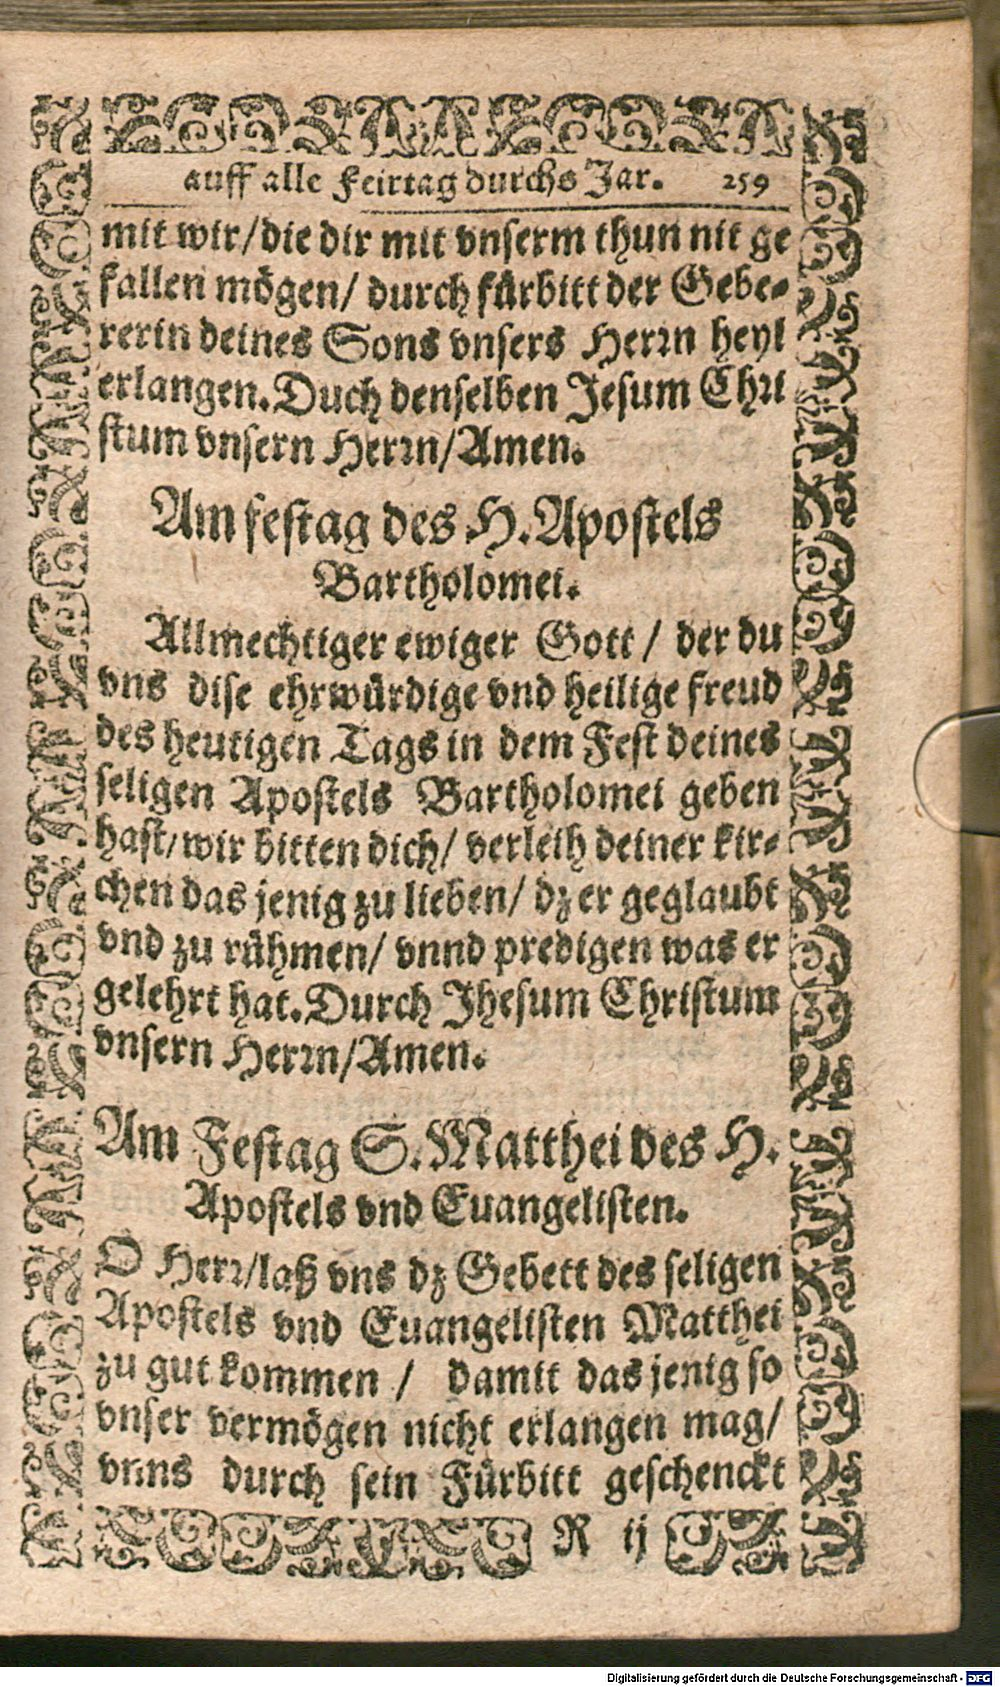 auff alle Feirtag durchs Jar. 259
mit wir/die dir mit vnserm thun nit ge
fallen mögen/ durch fürbitt der Gebe-
rerin deines Sons vnsers Herrn heyl
erlangen. Duch denselben Jesum Chri
stum vnsern Herrn/Amen.
Am festag des H. Apostels
Bartholomei.
Allmechtiger ewiger Gott / der du
vns dise ehrwürdige vnd heilige freud
des heutigen Tags in dem Fest deines
seligen Apostels Bartholomei geben
hast/wir bitten dich/ verleih deiner kir-
chen das jenig zu lieben/ dz er geglaubt
vnd zu rühmen/ vnnd predigen was er
gelehrt hat. Durch Jhesum Christum
vnsern Herrn/Amen.
Am Festag S. Matthei des H.
Apostels vnd Euangelisten.
O Herr/laß vns dz Gebett des seligen
Apostels vnd Euangelisten Matthei
zu gut kommen / damit das jenig so
vnser vermögen nicht erlangen mag/
vnns durch sein Fürbitt geschenckt
R ij
Digitalisierung gefördert durch die Deutsche Forschungsgemeinschaft - DFG